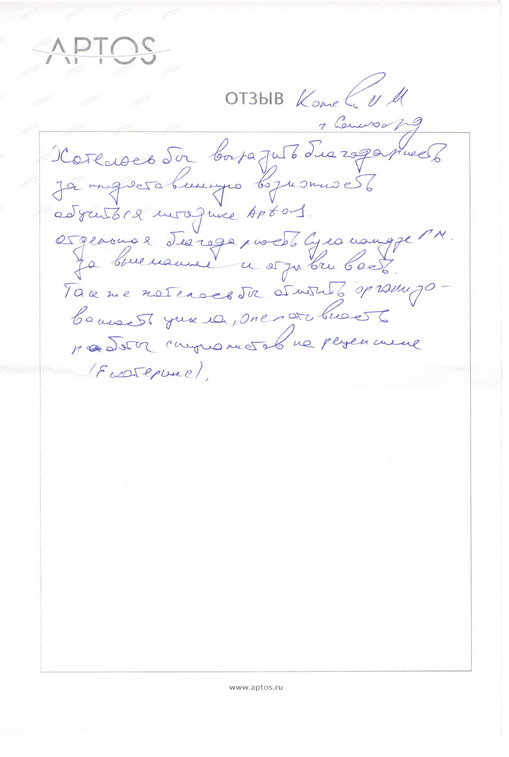 APTOS
ОТЗЫВ И М
г Салехард
Хотелось бы выразить благодарность
за предоставленную возможность
обучиться методике APTOS.
отдельная благодарность Суламанидзе Г М.
За внимание и отзывчивость.
Также хотелось бы отметить организо-
ванность цикла, оперативность
работы специалистов на рецепшене
(Екатерине).
www.aptos.ru